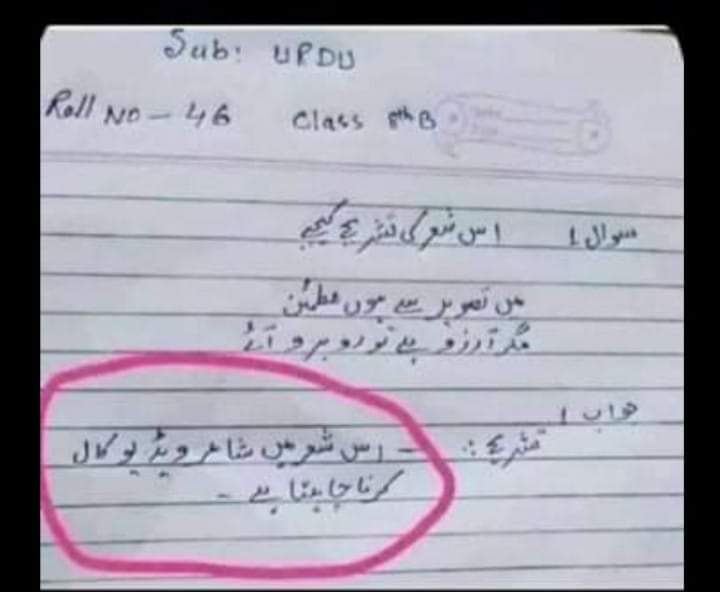 Sub: URDU
Roll NO - 46 Class 8th B
سوال 1 اس شعر کی تشریح کیجیے
میں تصویر سے ہوں مطمئن
مگر آرزو ہے تو روبرو آئے
جواب 1
تشریح :- اس شعر میں شاعر ویڈیو کال
کرنا چاہتا ہے -